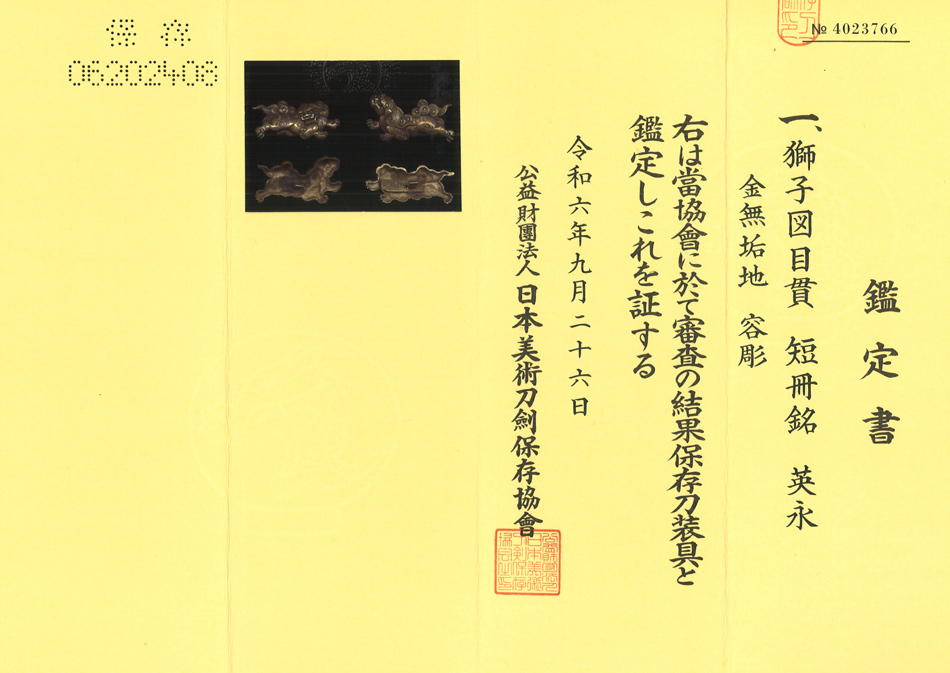 № 4023766
鑑定書
一、獅子図目貫 短冊銘 英永
金無垢地 容彫
右は當協會に於て審査の結果保存刀装具と
鑑定しこれを証する
令和六年九月二十六日
公益財團法人 日本美術刀劍保存協會
保存
06202408